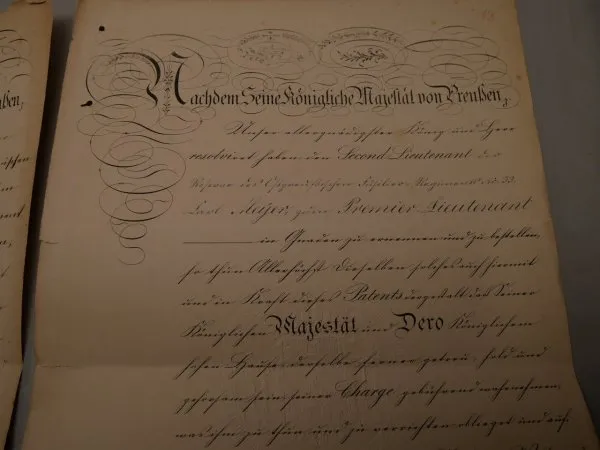 Nachdem Seine Königliche Majestät von Preußen,
Unser allergnädigster König und Herr
resolviret haben den Second Lieutenant der
Reserve des Füsilier-Regiments No 33
Meyer, zum Premier Lieutenant
in Gnaden zu ernennen und zu bestellen,
so thun Allerhöchst Dieselben solches auch hiermit
und in Kraft dieses Patents dergestalt daß Seiner
Königlichen Majestät und Dero Königlichem
hohen Hause, derselbe ferner getreu, hold und
gehorsam sein, seiner Charge gebührend wahrnehmen,
was ihm zu thun und zu verrichten oblieget und auf-